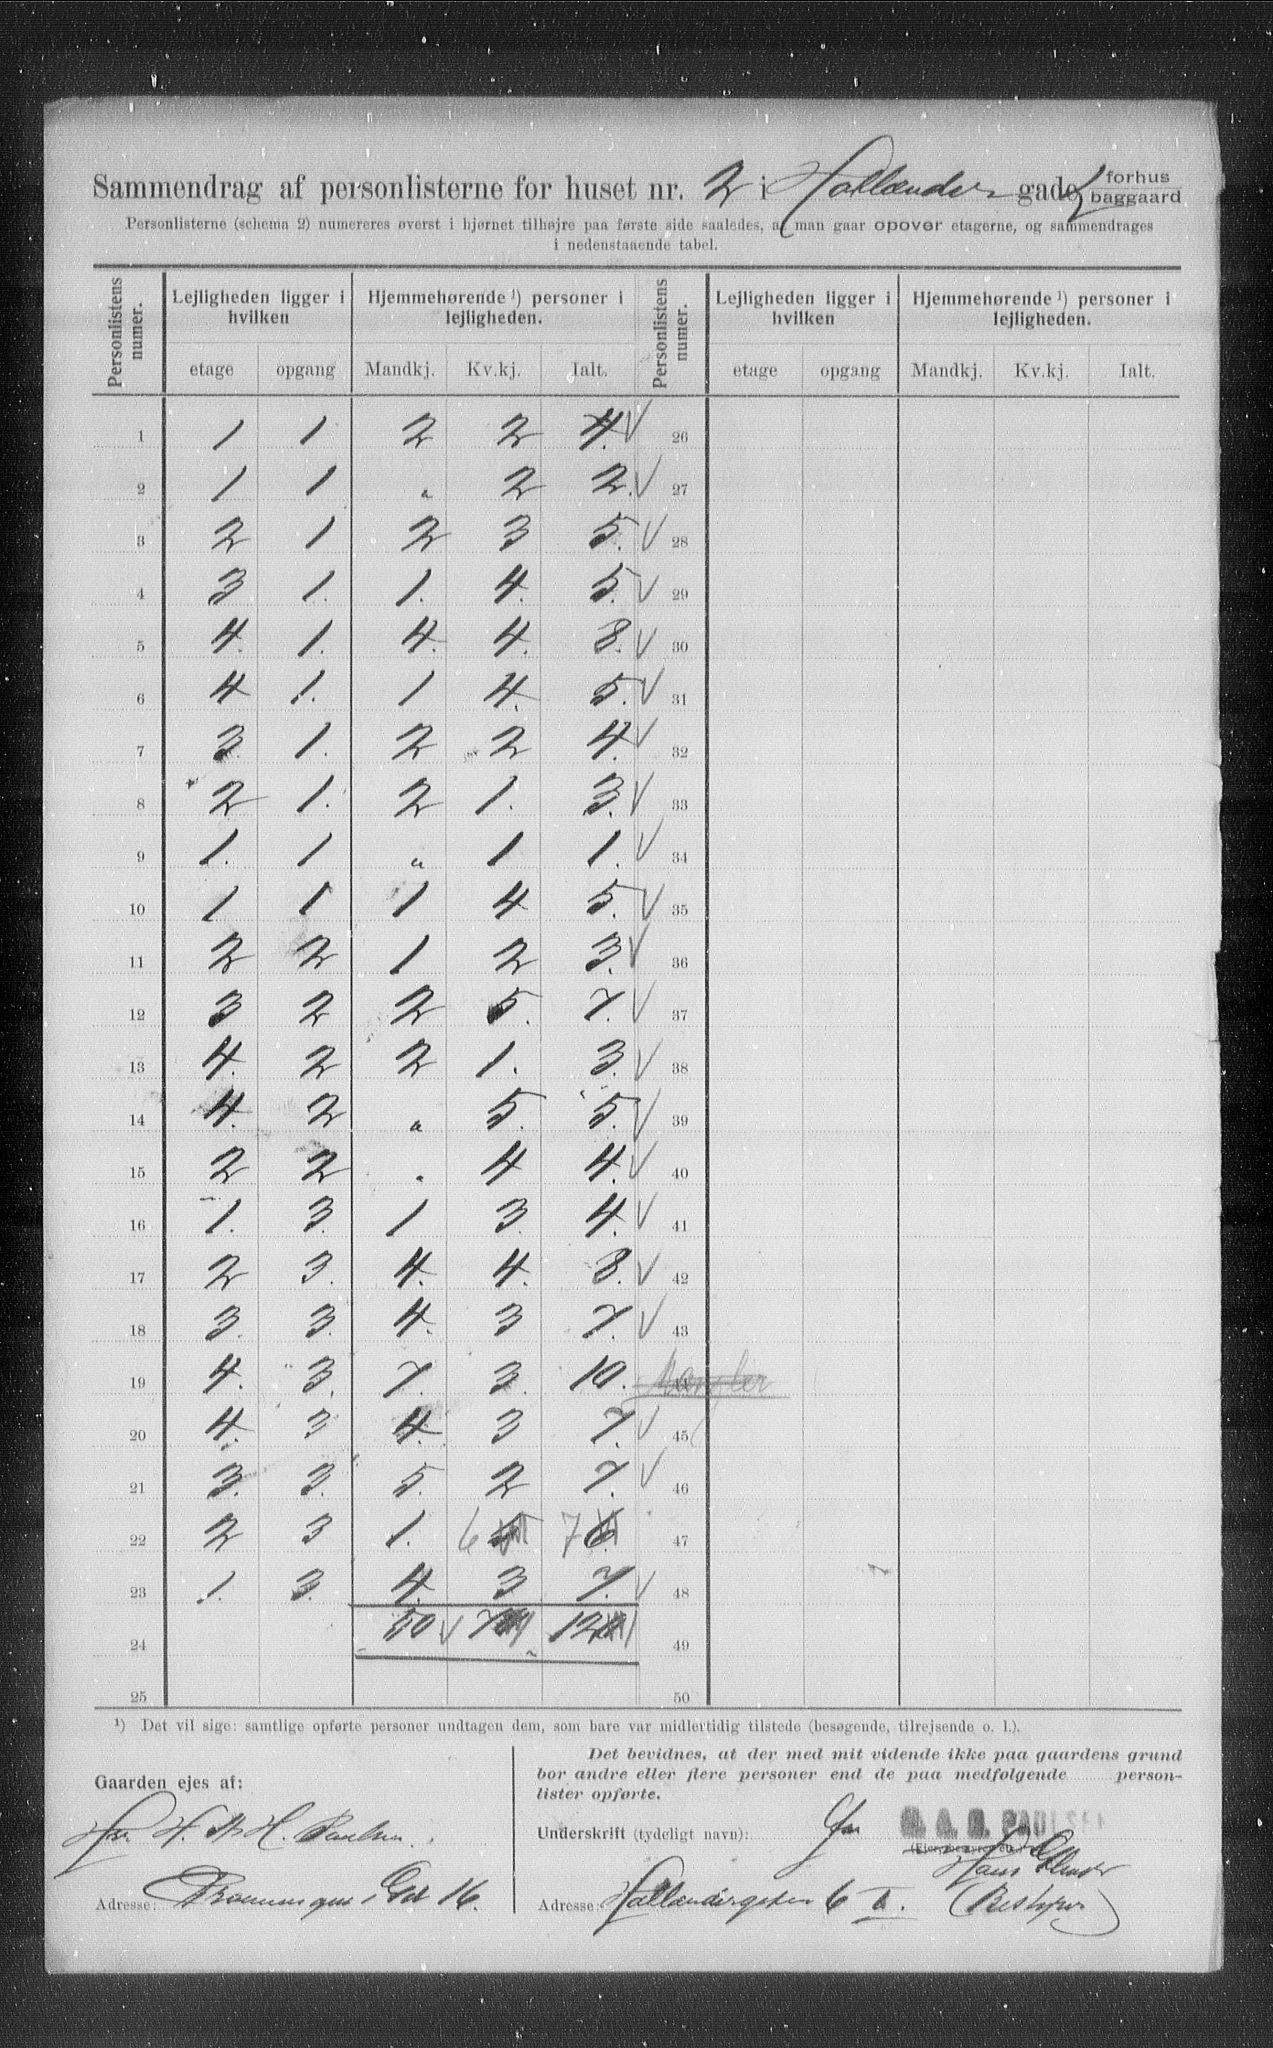 Sammendrag af personlisterne for huset nr. 2 i Hollænder gade forhus baggaard
Personlisterne (schema 2) numereres øverst i hjørnet tilhøjre paa første side saaledes, at man gaar opover etagerne, og sammendrages
i nedenstaaende tabel.
Personlistens numer. Lejligheden ligger i hvilken Hjemmehørende ¹) personer i lejligheden. Personlistens numer. Lejligheden ligger i hvilken Hjemmehørende ¹) personer i lejligheden.
etage opgang Mandkj. Kv.kj. Ialt. etage opgang Mandkj. Kv.kj. Ialt.
1 1 1 2 2 4. 26
2 1 1 " 2 2. 27
3 2 1 2 3 5. 28
4 3 1. 1. 4. 5. 29
5 4. 1. 4. 4. 8. 30
6 4 1. 1 4. 5. 31
7 3. 1. 2 2 4. 32
8 2 1. 2 1. 3. 33
9 1. 1 " 1 1. 34
10 1 1 1 4 5. 35
11 2 2 1 2 3. 36
12 3 2 2 5. 7. 37
13 4. 2 2 1. 3. 38
14 4. 2 " 5. 5. 39
15 2 2 " 4 4. 40
16 1. 3. 1 3. 4. 41
17 2 3. 4. 4. 8. 42
18 3. 3. 4. 3 7. 43
19 4. 3. 7. 3. 10. Mangler
20 4. 3 4. 3 7. 45
21 3. 3. 5. 2 7. 46
22 2 3 1. 6 7 47
23 1. 3. 4. 3 7. 48
24 50 49
25 50
¹) Det vil sige: samtlige opførte personer undtagen dem, som bare var midlertidig tilstede (besøgende, tilrejsende o. l.).
Gaarden ejes af:
Hr. H. A. H. Paulsen
Adresse: Gd 16.
Det bevidnes, at der med mit vidende ikke paa gaardens grund
bor andre eller flere personer end de paa medfølgende person-
lister opførte.
Underskrift (tydeligt navn): for H. A. H. PAULSEN
Hans
Adresse: Hollændergaden 6 (Bestyrer)